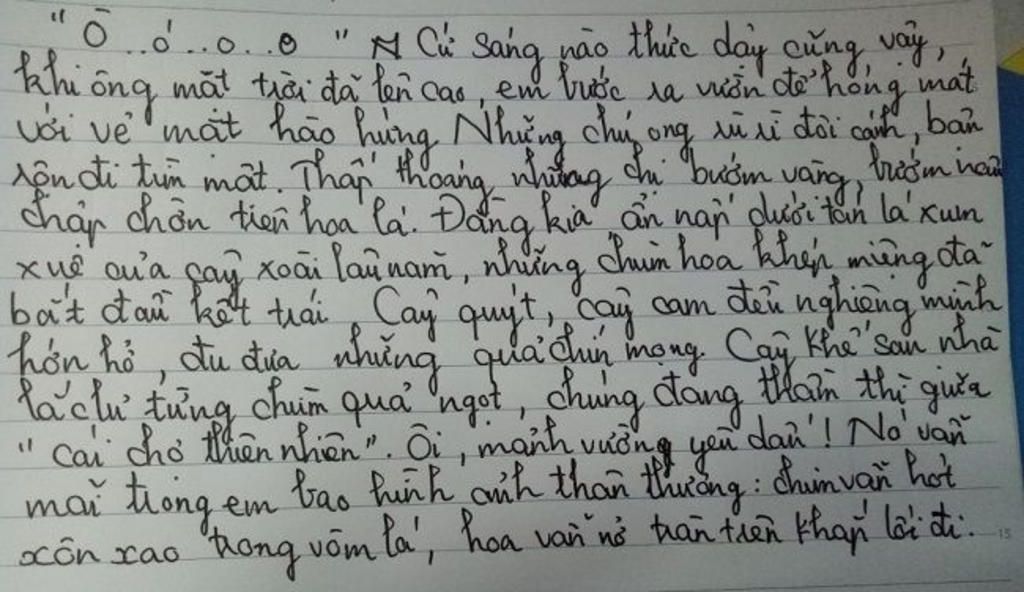 "Ò...ó...o...o" Cứ sáng nào thức dậy cũng vậy,
khi ông mặt trời đã lên cao, em bước ra vườn để hóng mát
với vẻ mặt hào hứng Những chú ong rù rì đôi cánh, bận
rộn đi tìm mật. Thấp thoáng những chị bướm vàng, bướm nâu
chập chờn trên hoa lá. Đằng kia, ẩn nấp dưới tán lá xum
xuê của cây xoài lâu năm, những chùm hoa khép miệng đã
bắt đầu kết trái Cây quýt, cây cam đều nghiêng mình
hớn hở, đu đưa những quả chín mọng. Cây khế sau nhà
lắc lư từng chùm quả ngọt, chúng đang thầm thì giữa
"cái chợ thiên nhiên". Ôi, mảnh vườn yêu dấu! Nó vẫn
mãi trong em bao hình ảnh thân thương: chim vẫn hót
xôn xao trong vòm lá, hoa vẫn nở tràn trên khắp lối đi.
15